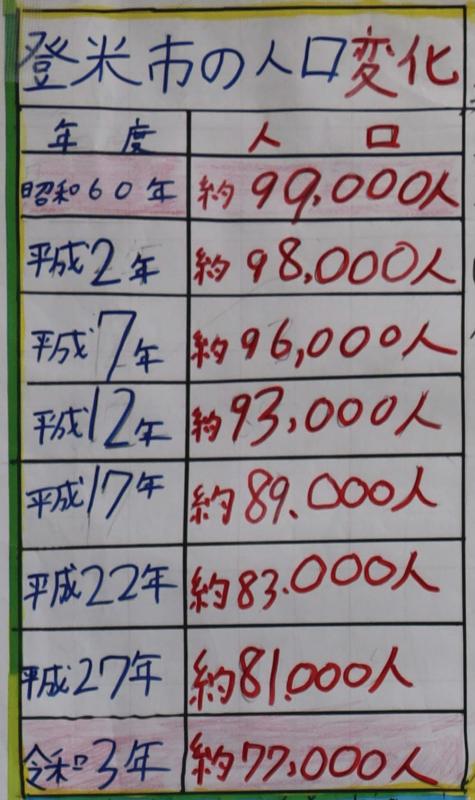 登米市の人口変化
年度 人口
昭和60年 約99.000人
平成2年 約98.000人
平成7年 約96,000人
平成12年 約93.000人
平成17年 約89.000人
平成22年 約83.000人
平成27年 約81.000人
令和3年 約77,000人